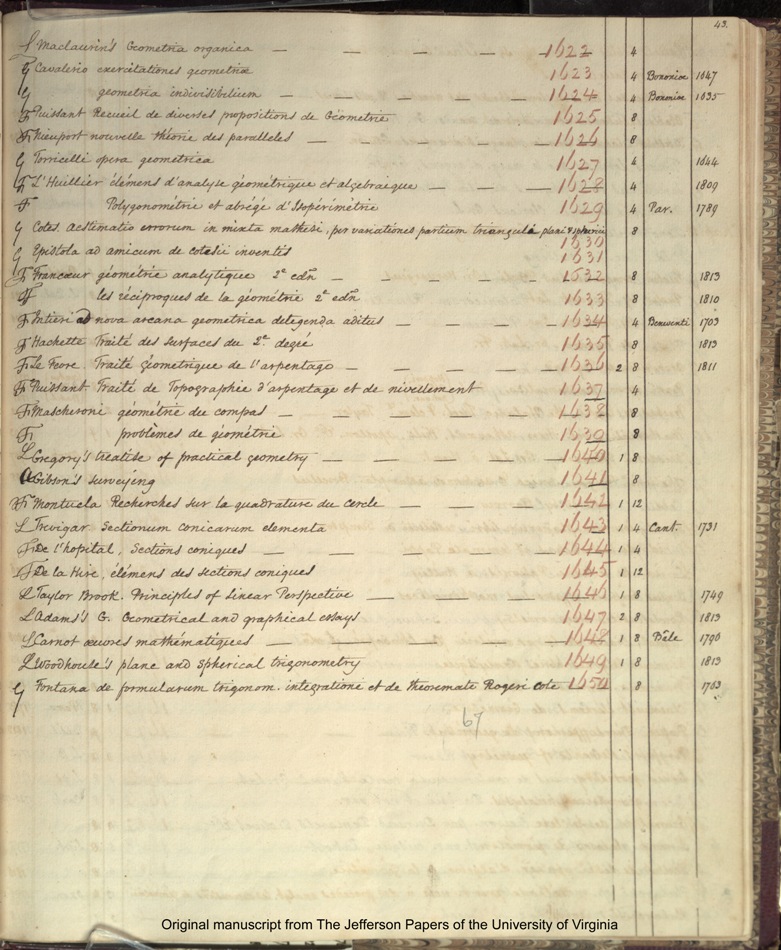 43.
L Maclaurin's Geometria organica — — — — 1622 4
G Cavalerio exercitationes geometriæ 1623 4 Bononiæ 1647
G geometria indivisibilium — — — — 1624 4 Bononiæ 1635
F Puissant Recueil de diverses propositions de Géometrie 1625 8
F Nieuport nouvelle théorie des paralleles — — — — 1626 8
G Torricelli opera geometrica 1627 4 1644
F L'Huillier élémens d'analyse géométrique et algebraique — — — 1628 4 1809
F Polygonométrie et abrégé d'Isopérimétrie 1629 4 Par. 1789
G Cotes. Aestimatio errorum in mixta mathesi, per variationes partium trianguli plani & sphærici 1630 8
G Epistola ad amicum de cotesii inventis 1631
F Francœur géometrie analytique 2e edn — — — — 1632 8 1813
F les réciproques de la géométrie 2e edn 1633 8 1810
F Intieri ad nova arcana geometrica detegenda aditus — — — — 1634 4 Beneventi 1703
F Hachette Traité des surfaces du 2e degré 1635 8 1813
F Le Fevre. Traité géometrique de l'arpentage — — — — 1636 2 8 1811
F Puissant. Traité de Topographie d'arpentage et de nivellement 1637 4
F Mascheroni géométrie du compas — — — — 1638 8
F problèmes de géométrie 1639 8
L Gregory's treatise of practical geometry — — — — 1640 1 8
a Gibson's surveying 1641 8
F Montucla Recherches sur la quadrature du cercle — — — 1642 1 12
L Trevigar Sectionum conicarum elementa 1643 1 4 Cant. 1731
F De l'hopital, Sections coniques — — — — 1644 1 4
F De la Hire, élémens des sections coniques 1645 1 12
L Taylor Brook. Principles of Linear Perspective — — — — 1646 1 8 1749
L Adams's G. Geometrical and graphical essays 1647 2 8 1813
L Carnot œuvres mathématiques — — — — 1648 1 8 Bâle 1796
L Woodhoule's plane and spherical trigonometry 1649 1 8 1813
G Fontana de formularum trigonom. integratione et de theoremate Rogeri Cote 1650 8 1763
67
Original manuscript from The Jefferson Papers of the University of Virginia